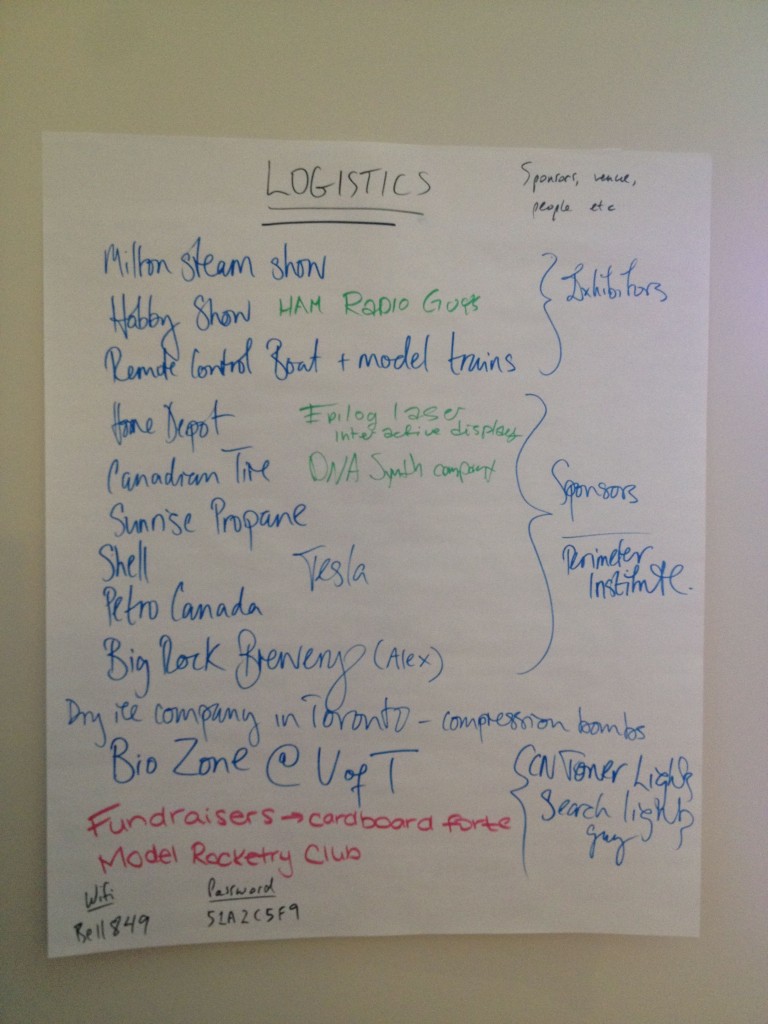 LOGISTICS
Sponsors, venue,
people etc
Milton steam show
Hobby Show HAM RADIO GUYS
Remote Control Boat + model trains
Exhibitors
Home Depot
Epilog laser
interactive display
Canadian Tire DNA Synth company
Sunrise Propane
Shell Tesla
Petro Canada
Big Rock Brewery (Alex)
Sponsors
Perimeter
Institute.
Dry ice company in Toronto - compression bombs
Bio Zone @ U of T
CN Tower Lights
Search lights
guy
Fundraisers → cardboard forte
Model Rocketry Club
Wifi Password
Bell849 51A2C5F9